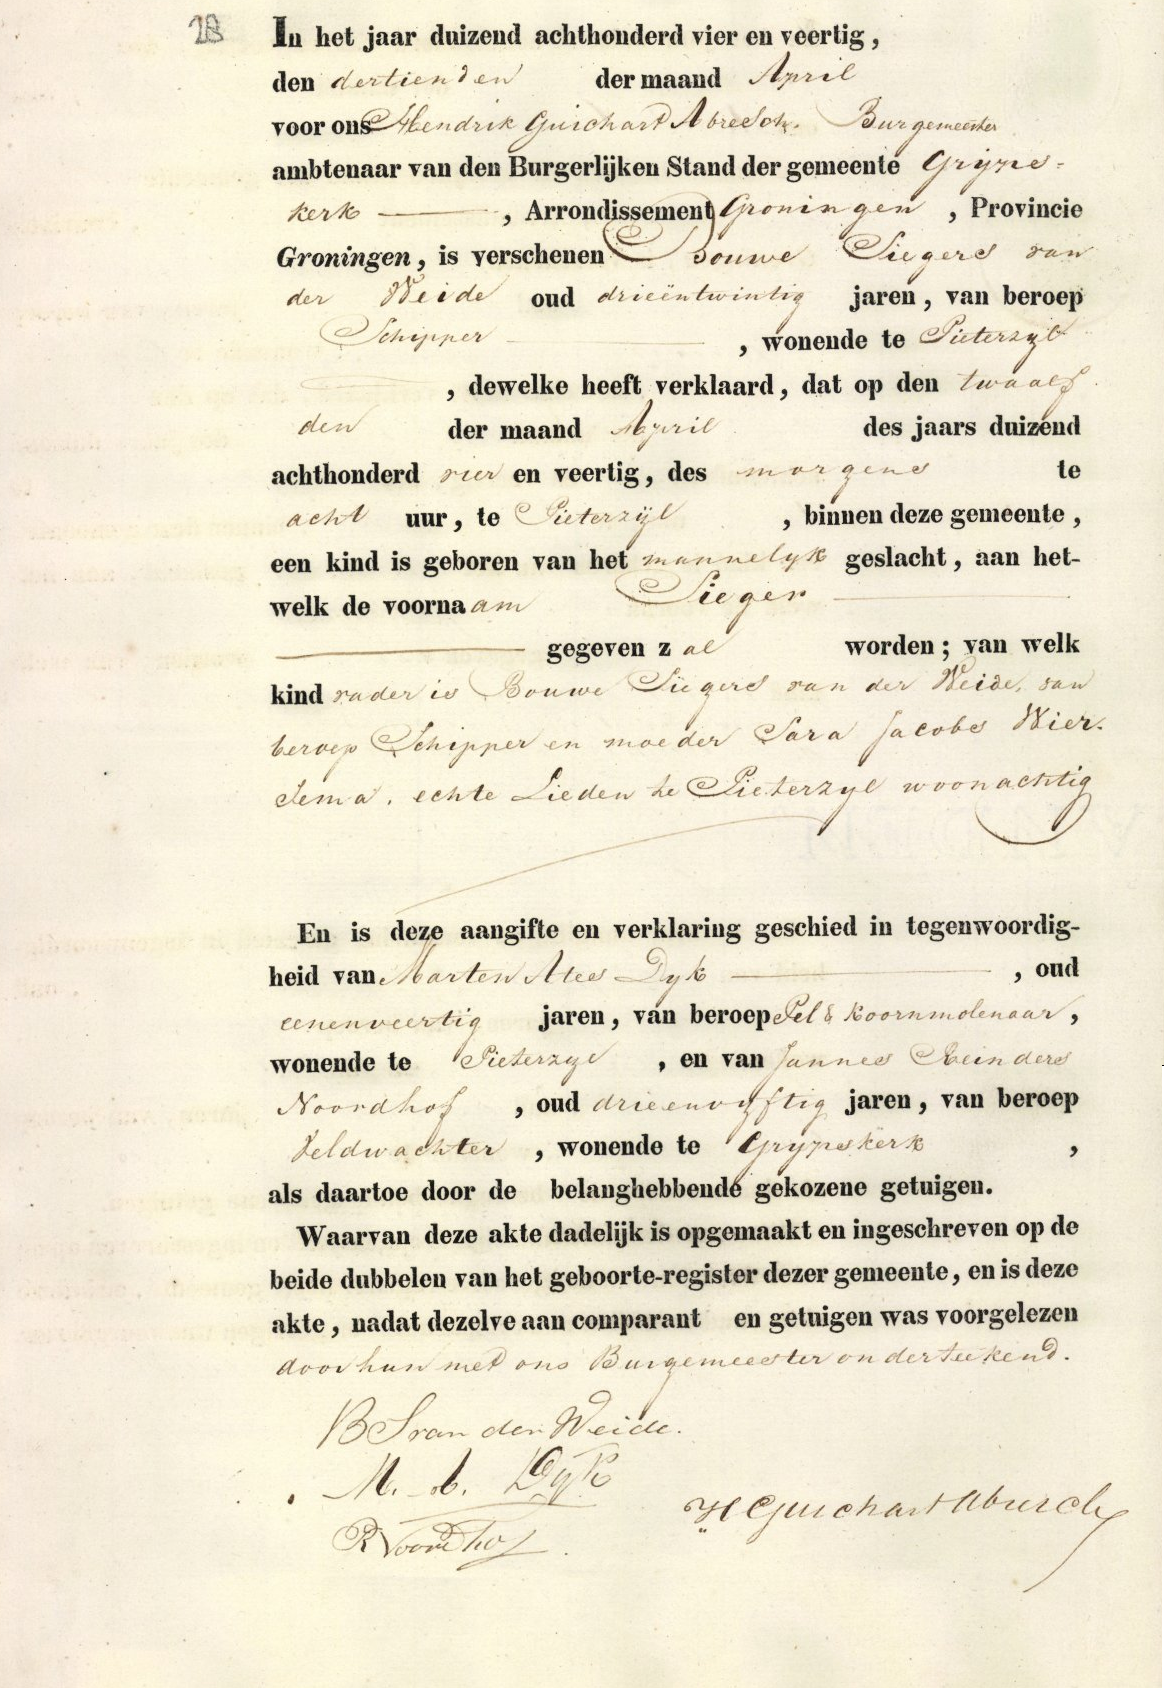 28 In het jaar duizend achthonderd vier en veertig,
den dertienden der maand April
voor ons Hendrik Guichart Abresch. Burgemeester
ambtenaar van den Burgerlijken Stand der gemeente Gryps-
kerk, Arrondissement Groningen, Provincie
Groningen, is verschenen Bouwe Siegers van
der Weide oud drieëntwintig jaren, van beroep
Schipper, wonende te Pieterzyl
, dewelke heeft verklaard, dat op den twaalf
den der maand April des jaars duizend
achthonderd vier en veertig, des morgens te
acht uur, te Pieterzijl, binnen deze gemeente,
een kind is geboren van het mannelyk geslacht, aan het-
welk de voornaam Sieger
gegeven zal worden; van welk
kind vader is Bouwe Siegers van der Weide, van
beroep Schipper en moeder Sara Jacobs Wier-
sema, echte Lieden te Pieterzyl woonachtig
En is deze aangifte en verklaring geschied in tegenwoordig-
heid van Marten Ates Dyk, oud
eenenveertig jaren, van beroep Pel & Koornmolenaar,
wonende te Pieterzyl, en van Jannes Reinders
Noordhof, oud drieenvyftig jaren, van beroep
Veldwachter, wonende te Grypskerk,
als daartoe door de belanghebbende gekozene getuigen.
Waarvan deze akte dadelijk is opgemaakt en ingeschreven op de
beide dubbelen van het geboorte-register dezer gemeente, en is deze
akte, nadat dezelve aan comparant en getuigen was voorgelezen
door hun met ons Burgemeester onderteekend.
B S van der Weide.
M. A. Dyk
H Guichart Abresch
R Noordhof